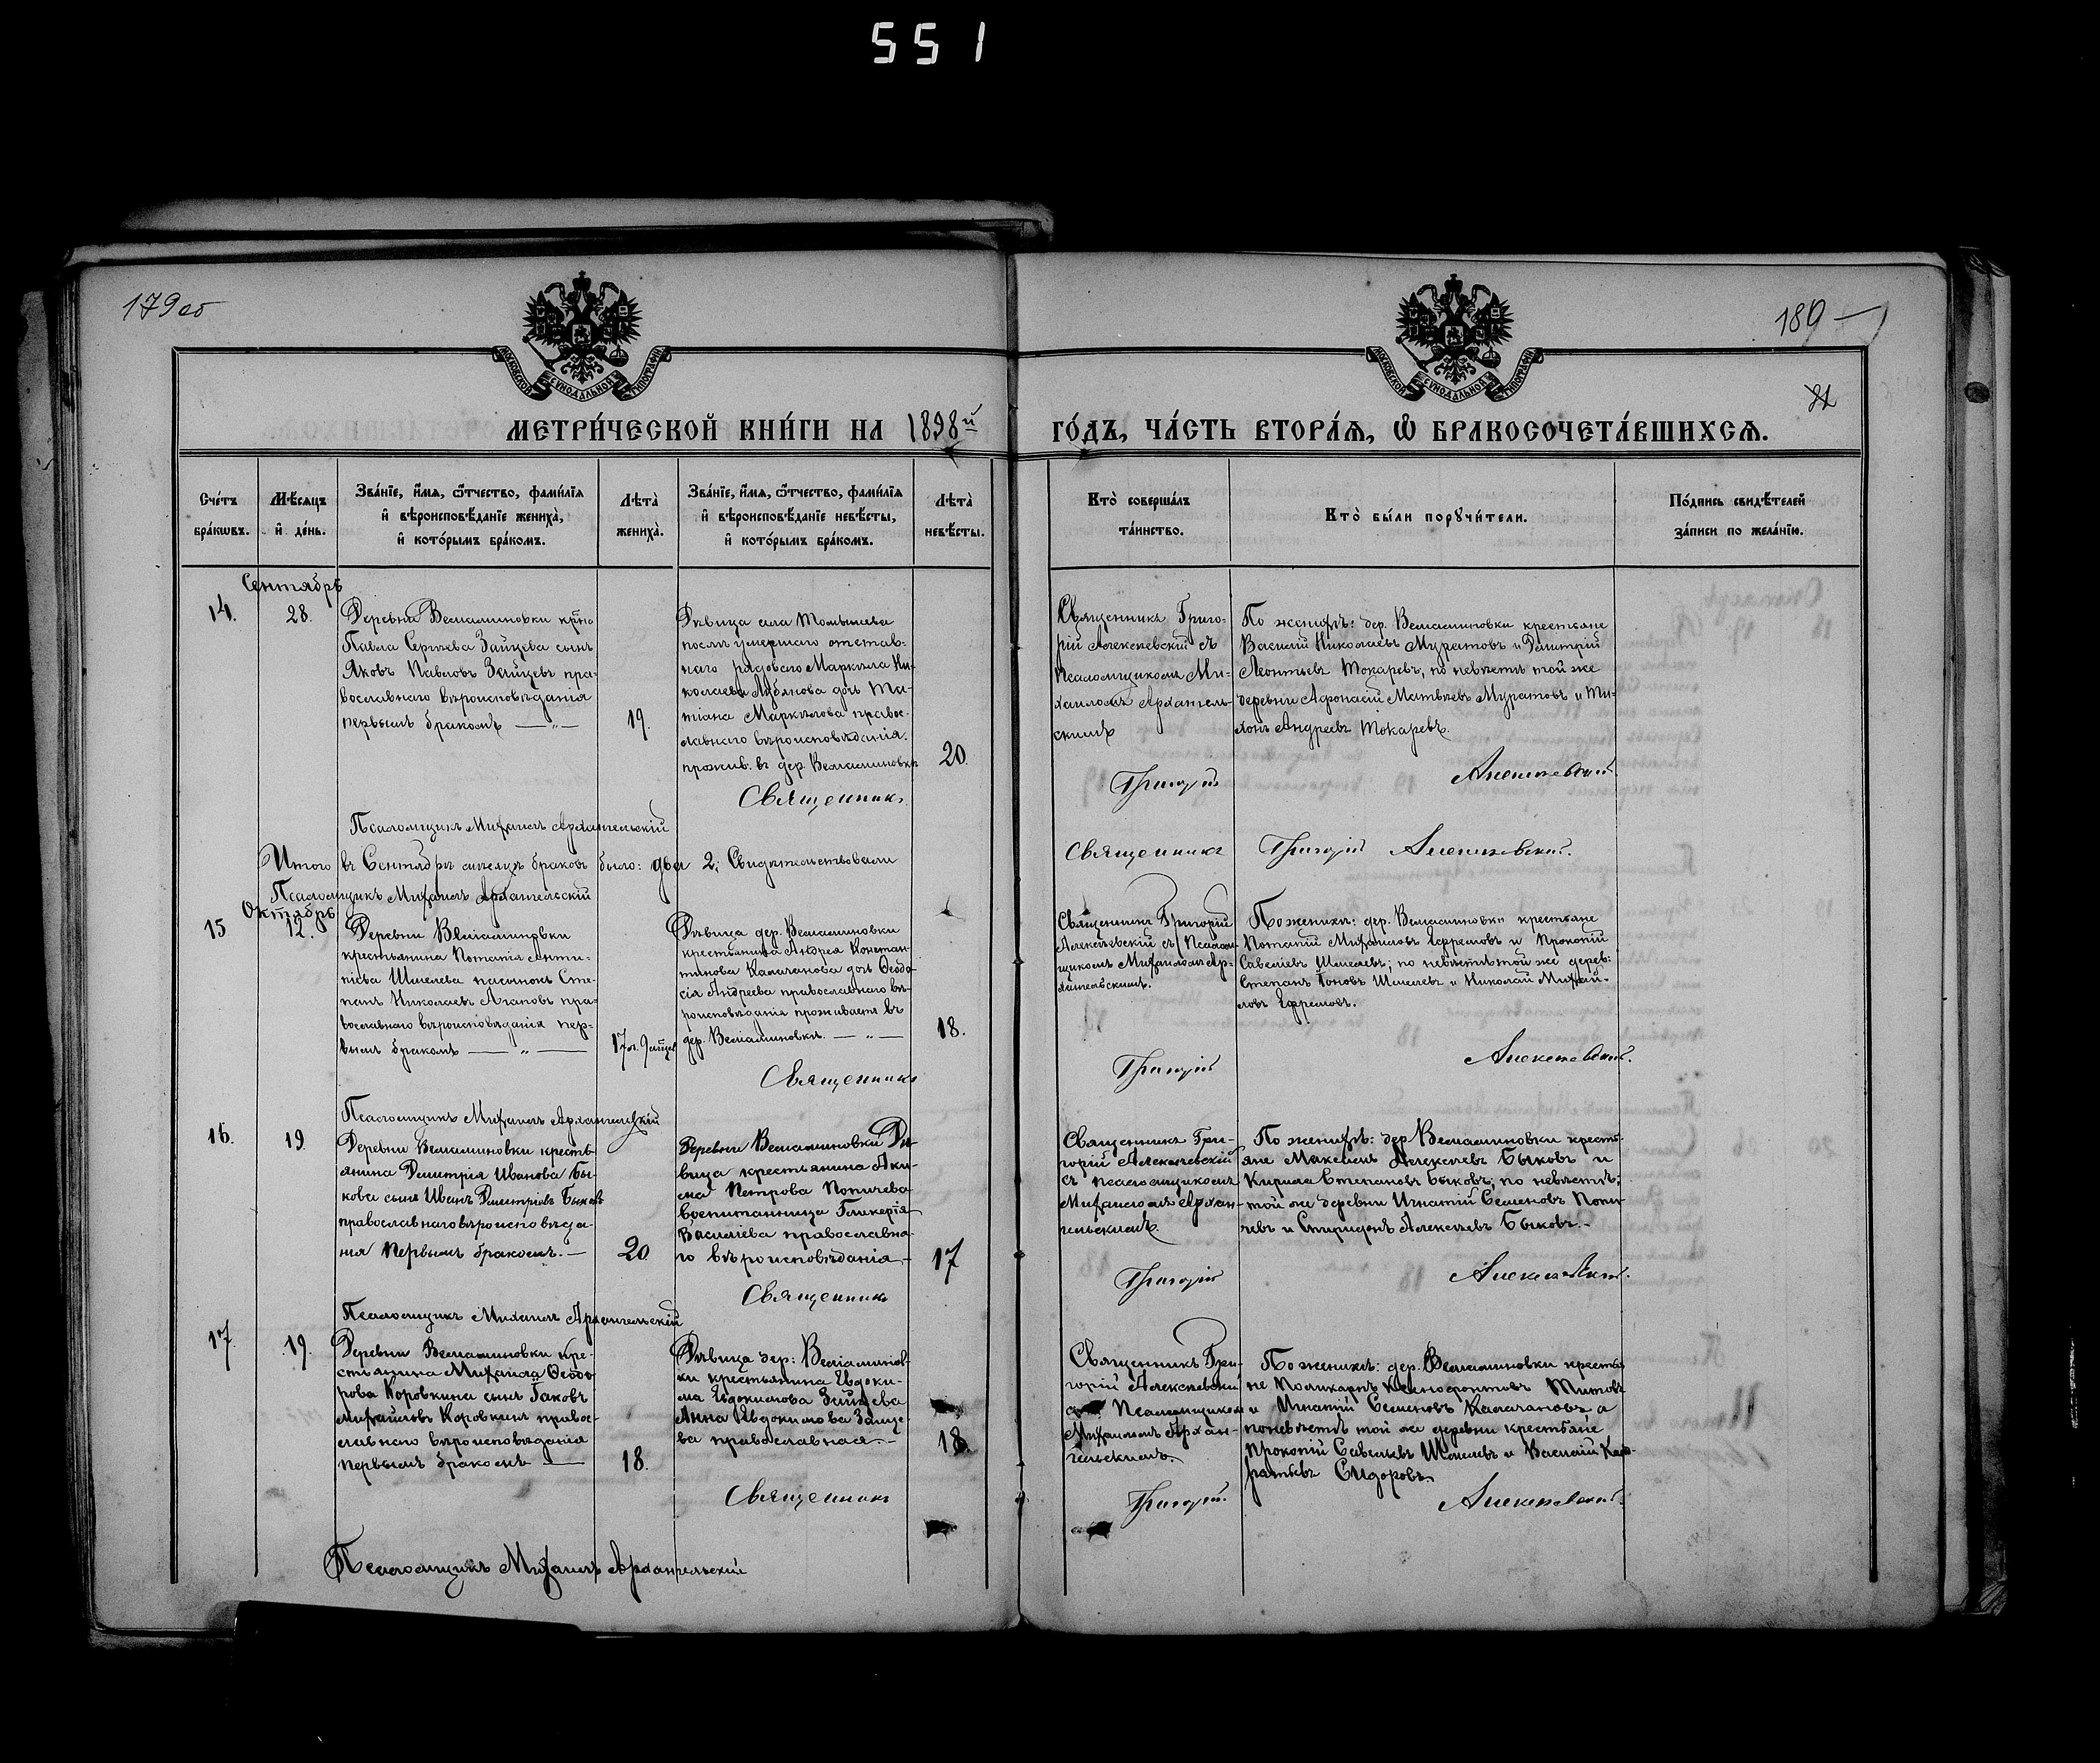 551
179об
180
МОСКОВСКОЙ СѴНОДАЛЬНОЙ ТИПОГРАФІИ
МОСКОВСКОЙ СѴНОДАЛЬНОЙ ТИПОГРАФІИ
МЕТРИ́ЧЕСКОЙ КНИ́ГИ НА 1898й
ГО́ДЪ, ЧА́СТЬ ВТОРА́Ѧ, Ѽ БРАКОСОЧЕТА́ВШИХСѦ.
Сче́тъ
бра́кωвъ.
Мѣ́сяцъ
и҆ де́нь.
Зва́нїе, и҆́мѧ, ѻ҆́тчество, фами́лїѧ
и҆ вѣроисповѣ́данїе жениха̀,
и҆ кото́рымъ бра́комъ.
Лѣта̀
жениха̀.
Зва́нїе, и҆́мѧ, ѻ҆́тчество, фами́лїѧ
и҆ вѣроисповѣ́данїе невѣ́сты,
и҆ кото́рымъ бра́комъ.
Лѣта̀
невѣ́сты.
Кто̀ соверша́лъ
та́инство.
Кто̀ бы́ли порꙋчи́тели.
По́дпись свидѣ́телей
за́писи по жела́нїю.
Сентябрь
14.
28.
Деревни Вельяминовки
Павла Сергѣева Зайцева сынъ
Яковъ Павловъ Зайцевъ пра-
вославнаго вѣроисповѣданія
первымъ бракомъ — „ —
19.
Дѣвица села
послѣ умершаго отстав-
наго рядоваго Маркелла Ни-
колаева дочь Та-
тіана Маркелова правос-
лавнаго вѣроисповѣданія.
прожив. въ дер. Вельяминовкѣ
20.
Священникъ Григо-
рій Алексѣевскій съ
Псаломщикомъ Ми-
хаиломъ Архангель-
скимъ
По женихѣ: дер. Вельяминовки крестьяне
Василій Николаевъ Муратовъ и Димитрій
Леонтьевъ Токаревъ, по невѣстѣ той же
деревни Афонасій Матвѣевъ Муратовъ и Ти-
хонъ Андреевъ Токаревъ.
Священникъ
Григорій
Алексѣевскій.
Псаломщикъ Михаилъ Архангельскій
Итого въ Сентябрѣ мѣсяцѣ браковъ было: два 2; Свидѣтельствовали
Священникъ Григорій Алексѣевскій.
Псаломщикъ Михаилъ Архангельскій
Октябрь
15
12.
Деревни Вельяминовки
крестьянина Потапія Анти-
піева Шмелева пасынокъ Сте-
панъ Николаевъ Агаповъ пра-
вославнаго вѣроисповѣданія пер-
вымъ бракомъ — „ —
Дѣвица дер. Вельяминовки
крестьянина Андрея Констан-
тинова Калачанова дочь Ѳеодо-
сія Андреева православнаго вѣ-
роисповѣданія проживаетъ въ
дер. Вельяминовкѣ. — „ —
18.
Священникъ Григорій
Алексѣевскій съ Псалом-
щикомъ Михаиломъ Ар-
хангельскимъ.
По женихѣ: дер. Вельяминовки крестьяне
Потапій Михаиловъ Ефремовъ и Прокопій
Савеліевъ Шмелевъ; по невѣстѣ той же дерев:
Степанъ Іоновъ Шмелевъ и Николай Михай-
ловъ Ефремовъ.
Священникъ
Григорій
Алексѣевскій.
Псаломщикъ Михаилъ Архангельскій
16.
19.
Деревни Вельяминовки кресть-
янина Димитрія Иванова Бы-
кова сынъ Иванъ Димитріевъ Быковъ
православнаго вѣроисповѣда-
нія первымъ бракомъ. —
20
Деревни Вельяминовки Дѣ-
вица крестьянина Аки-
ма Петрова Попичева
воспитанница Гликерія
Василіева православна-
го вѣроисповѣданія —
17
Священникъ Гри-
горій Алексѣевскій
съ псаломщикомъ
Михаиломъ Архан-
гельскимъ.
По женихѣ: дер. Вельяминовки кресть-
яне Максимъ Алексѣевъ Быковъ и
Кирилъ Степановъ Быковъ; по невѣстѣ:
той же деревни Игнатій Семеновъ Попи-
чевъ и Спиридонъ Алексѣевъ Быковъ. —
Священникъ
Григорій
Алексѣевскій.
Псаломщикъ Михаилъ Архангельскій
17.
19.
Деревни Вельяминовки кре-
стьянина Михаила Ѳеодо-
рова Коровкина сынъ Іаковъ
Михайловъ Коровкинъ правос-
лавнаго вѣроисповѣданія
первымъ бракомъ —
18.
Дѣвица дер: Вельяминов-
ки крестьянина Евдоки-
ма Евдокимова Зайцева
Анна Евдокимова Зайце-
ва православная. —
18.
Священникъ Гри-
горій Алексѣевскій
съ Псаломщикомъ
Михаиломъ Архан-
гельскимъ.
По женихѣ: дер. Вельяминовки крестья-
не Поликарпъ Ксенофонтовъ Титовъ
и Игнатій Семеновъ Калачановъ, а
по невѣстѣ той же деревни крестьяне
Прокопій Савельевъ Шмелевъ и Василій Код-
ратьевъ Сидоровъ.
Священникъ
Григорій
Алексѣевскій.
Псаломщикъ Михаилъ Архангельскій